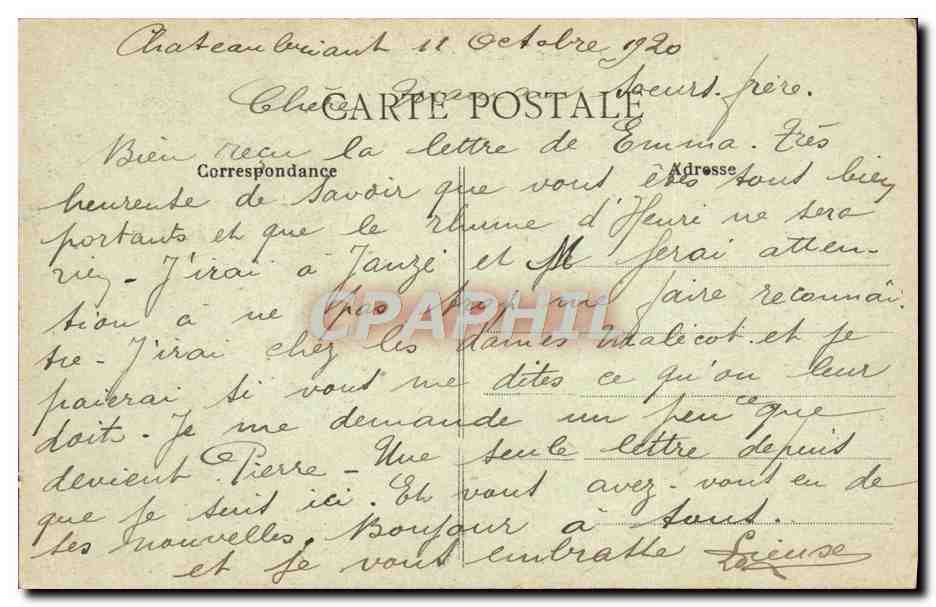 Chateaubriant 11 Octobre 1920
Chère Maman Soeurs. frère.
CARTE POSTALE
Bien reçu la lettre de Emma. Très
Correspondance
Adresse
heureuse de savoir que vous êtes tous bien
portants et que le rhume d'Henri ne sera
rien - J'irai à Janzé et ferai atten-
tion à ne pas trop me faire reconnaî-
tre - J'irai chez les dames Malicot et je
paierai si vous me dites ce qu'on leur
doit - Je me demande un peu ce que
devient Pierre - Une seule lettre depuis
que je suis ici. Et vous avez-vous eu de
ses nouvelles. Bonjour à tous.
et je vous embrasse
CPAPHIL